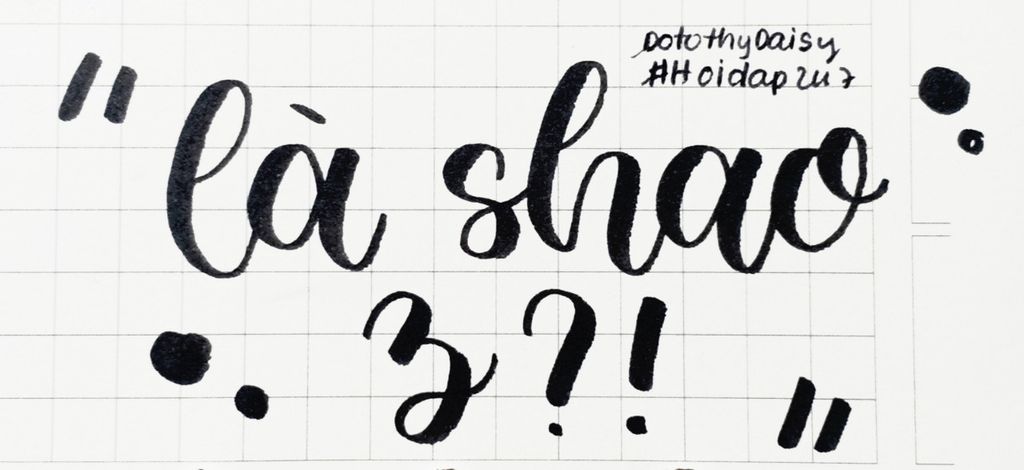 DotothyDaisy
#Hoidap247
"là shao
z?!"